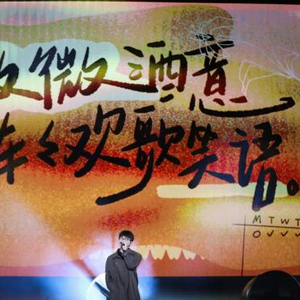 微酒意
欢歌笑语。
M T W T
O V V V